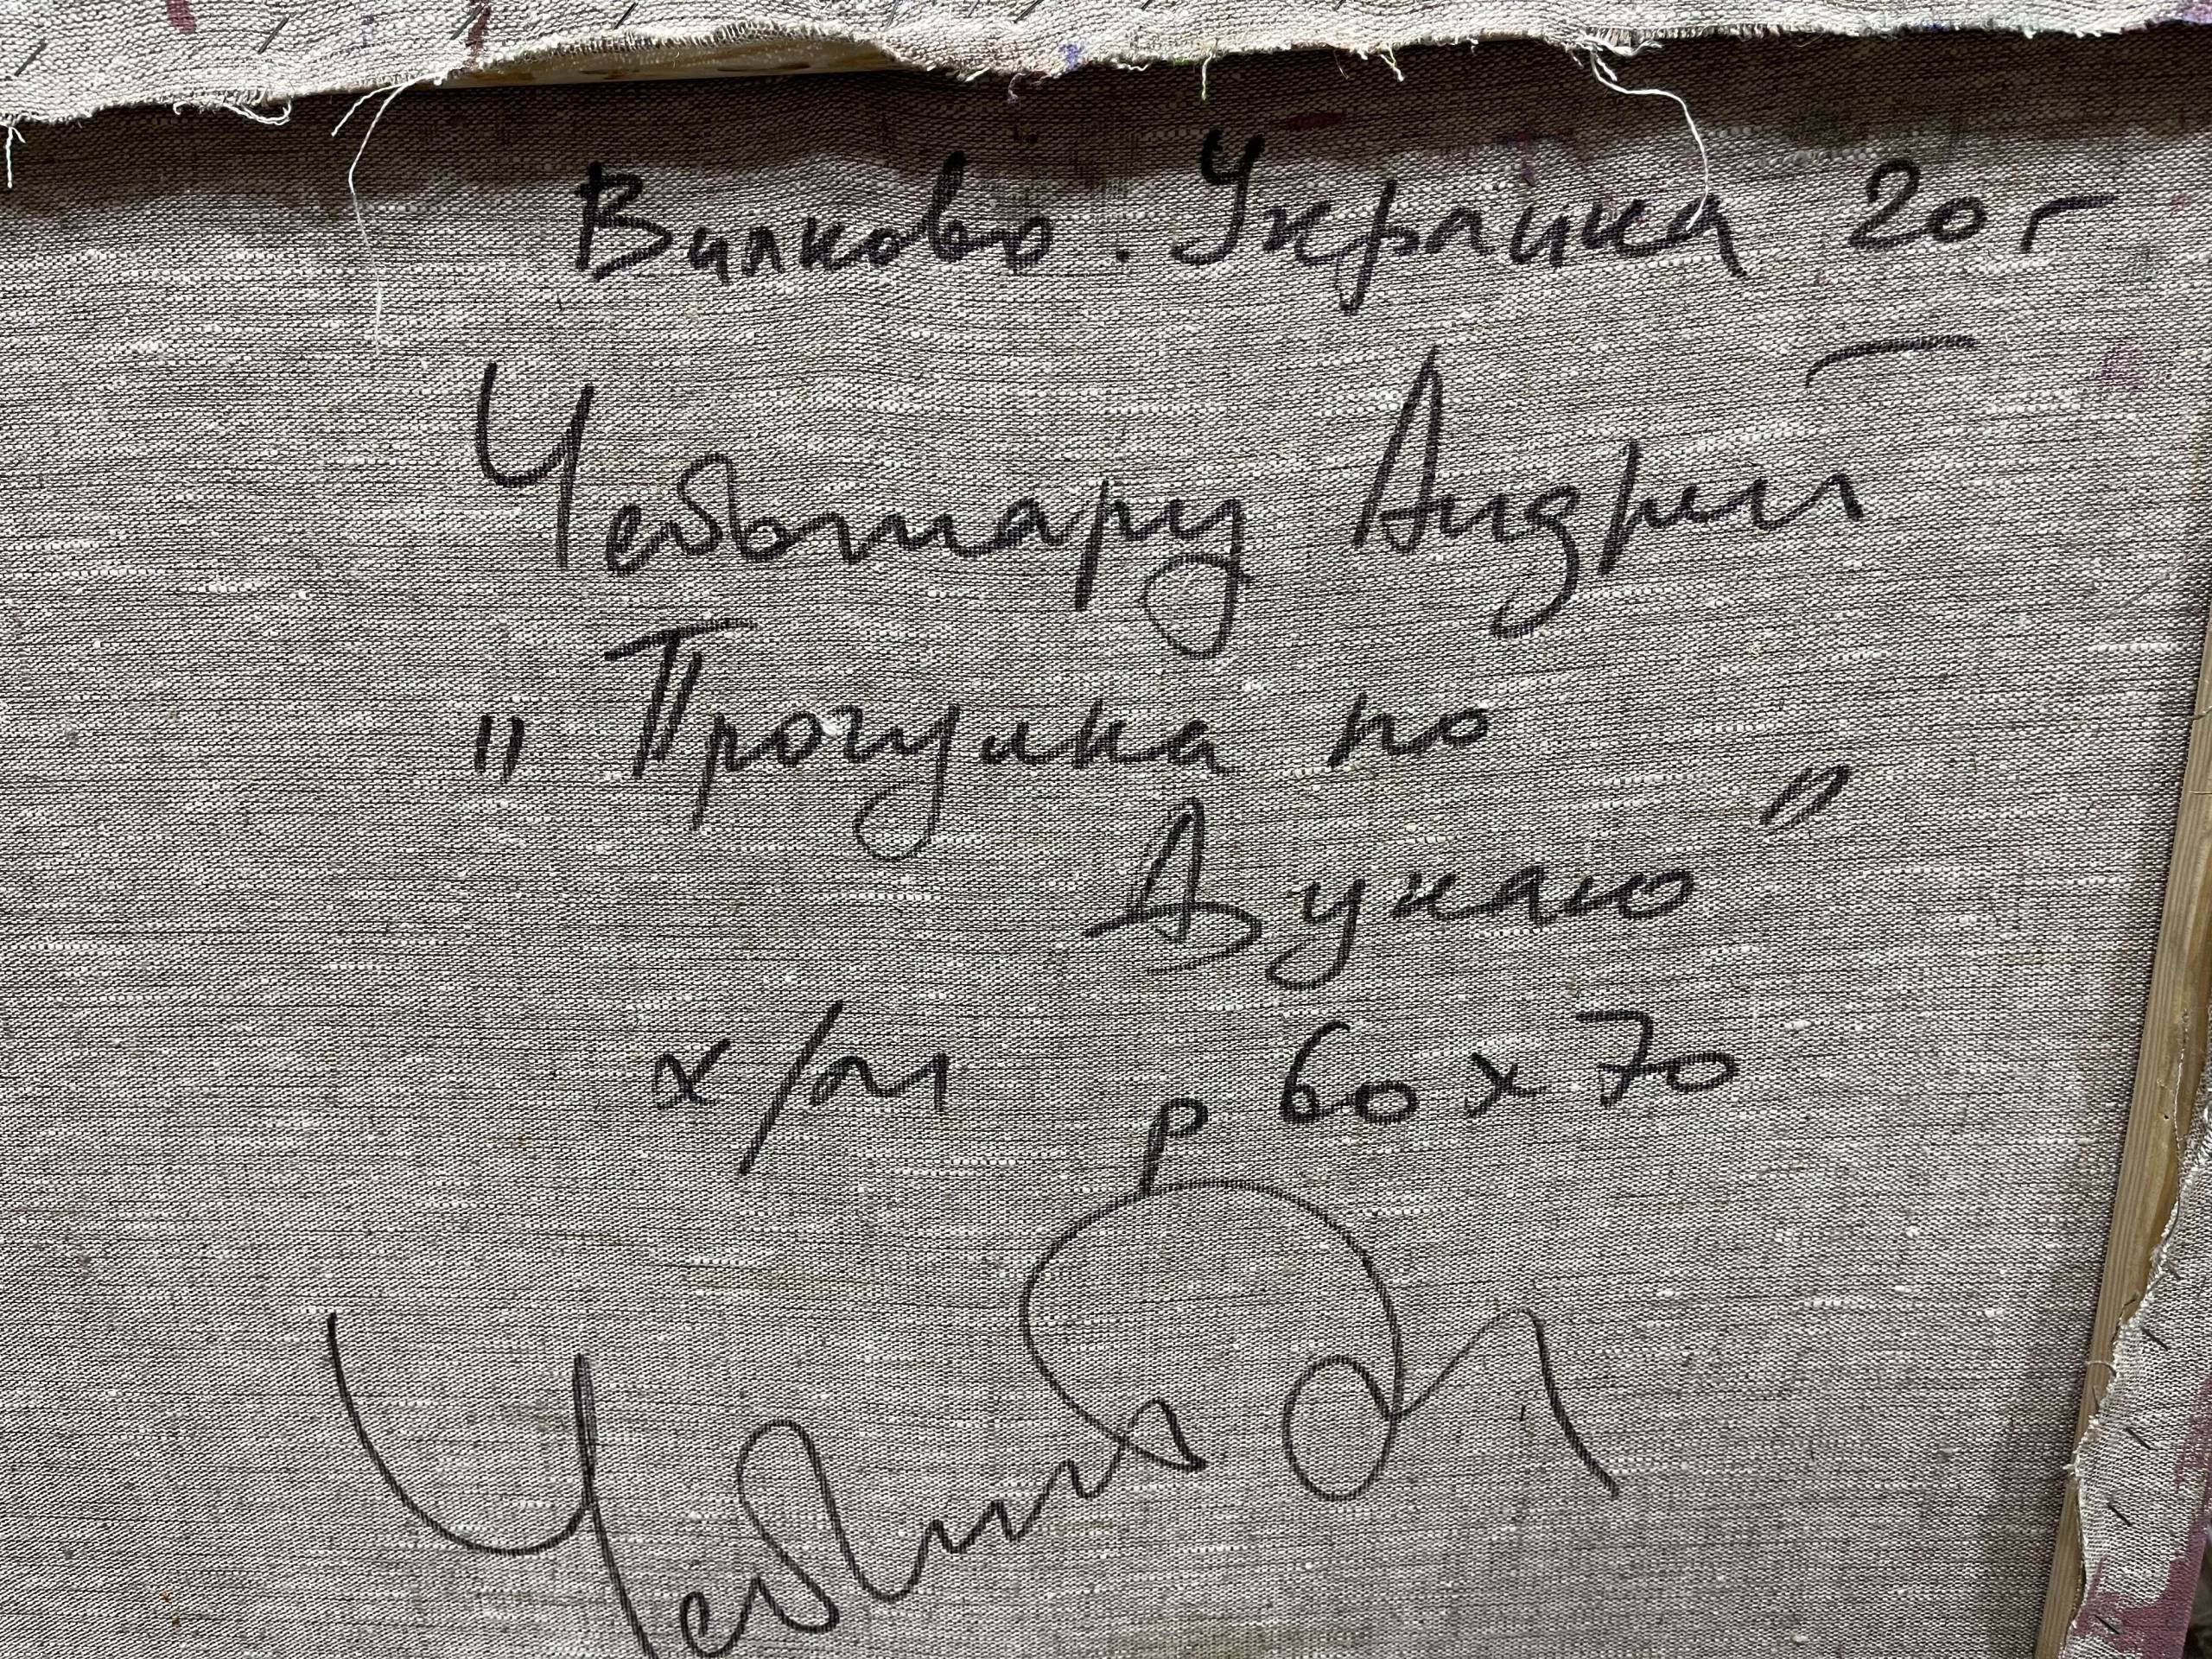 Вилково. Украина 20г
Чеботару Андрей
"Прогулка по
Дунаю"
х/м р 60 х 70